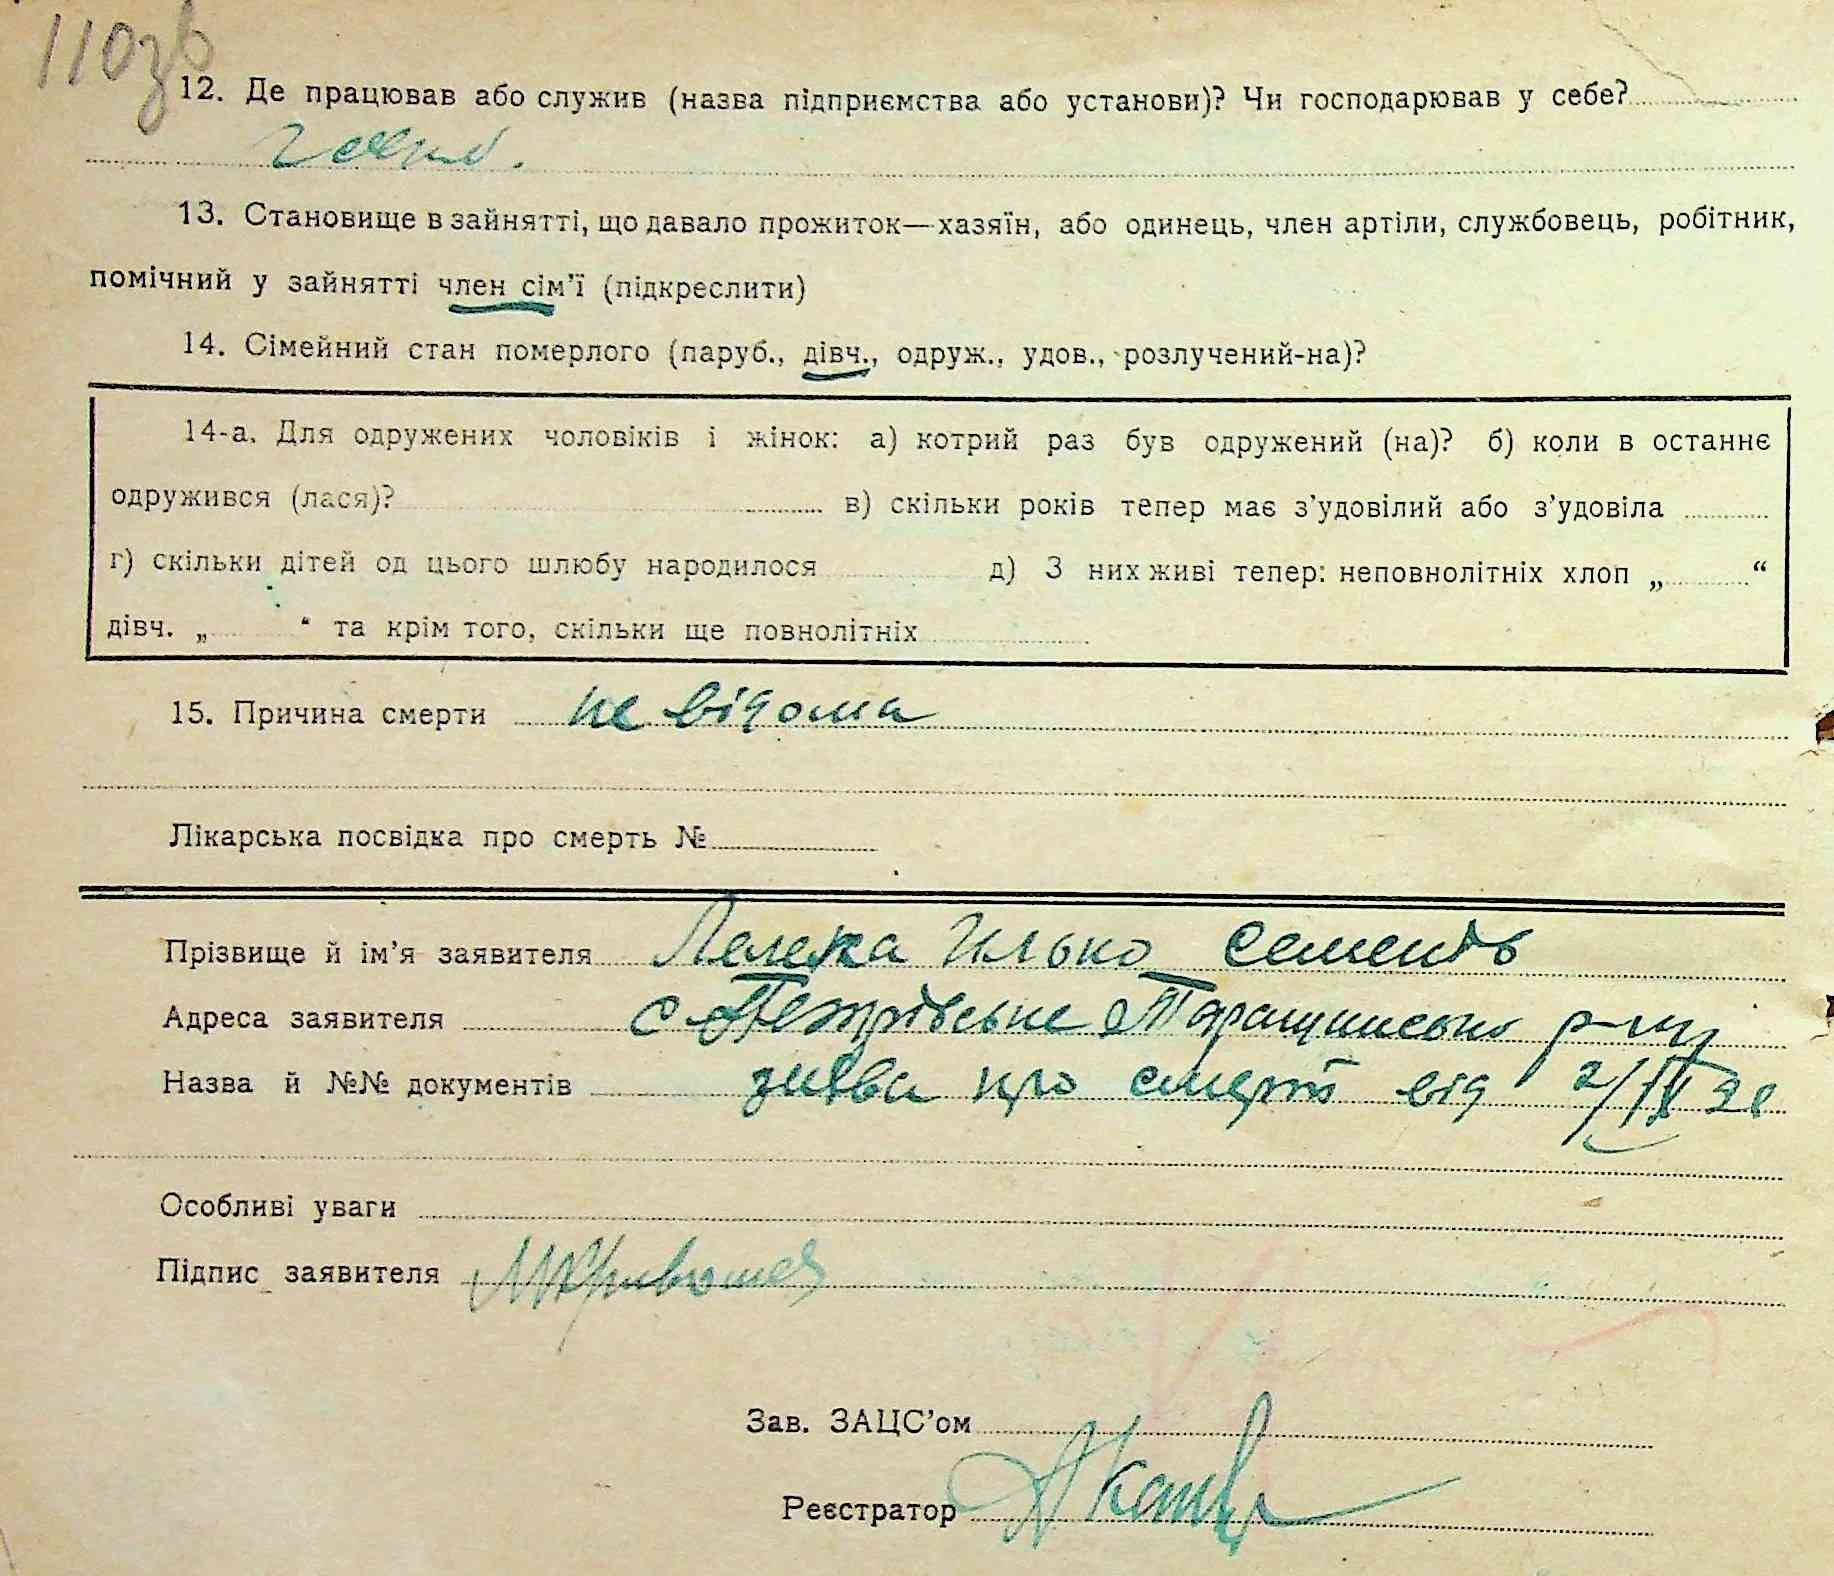 110зв
12. Де працював або служив (назва підприємства або установи)? Чи господарював у себе?
13. Становище в зайнятті, що давало прожиток—хазяїн, або одинець, член артіли, службовець, робітник,
помічний у зайнятті член сім'ї (підкреслити)
14. Сімейний стан померлого (паруб., дівч., одруж., удов., розлучений-на)?
14-а. Для одружених чоловіків і жінок: а) котрий раз був одружений (на)? б) коли в останнє
одружився (лася)? в) скільки років тепер має з'удовілий або з'удовіла
г) скільки дітей од цього шлюбу народилося д) З них живі тепер: неповнолітніх хлоп „ “
дівч. „ “ та крім того, скільки ще повнолітніх
15. Причина смерти не відома
Лікарська посвідка про смерть №
Прізвище й ім'я заявителя Лелека Илько Семенів
Адреса заявителя с Петрівське Таращинсько р-ну
Назва й №№ документів заява про смерть від 2/IX
Особливі уваги
Підпис заявителя
Зав. ЗАЦС'ом
Реєстратор